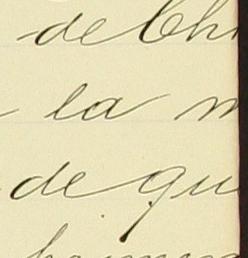 de Chi
la m
de qu